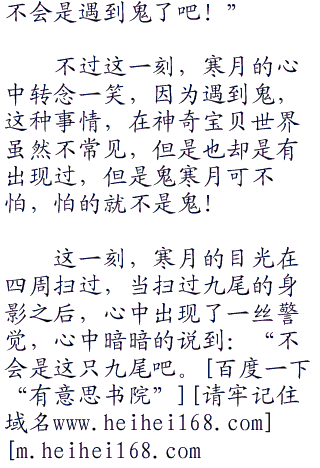 不会是遇到鬼了吧！”
不过这一刻，寒月的心
中转念一笑，因为遇到鬼，
这种事情，在神奇宝贝世界
虽然不常见，但是也却是有
出现过，但是鬼寒月可不
怕，怕的就不是鬼！
这一刻，寒月的目光在
四周扫过，当扫过九尾的身
影之后，心中出现了一丝警
觉，心中暗暗的说到：“不
会是这只九尾吧。[百度一下
“有意思书院”][请牢记住
域名www.heihei168.com]
[m.heihei168.com